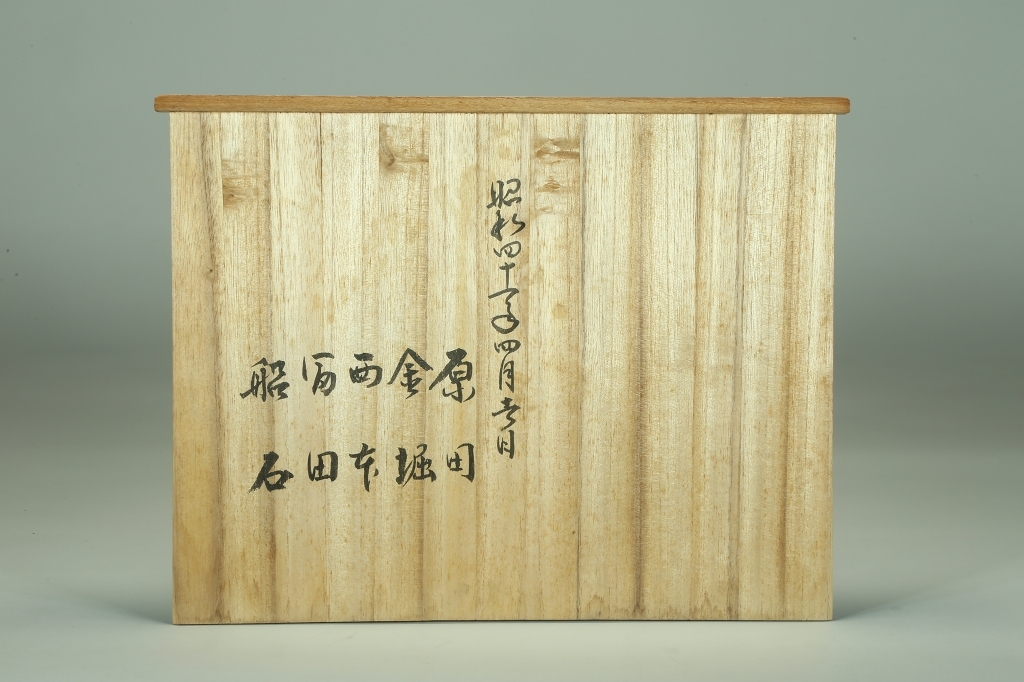 昭和四十一年四月吉日
原田
金堀
西本
富田
船石